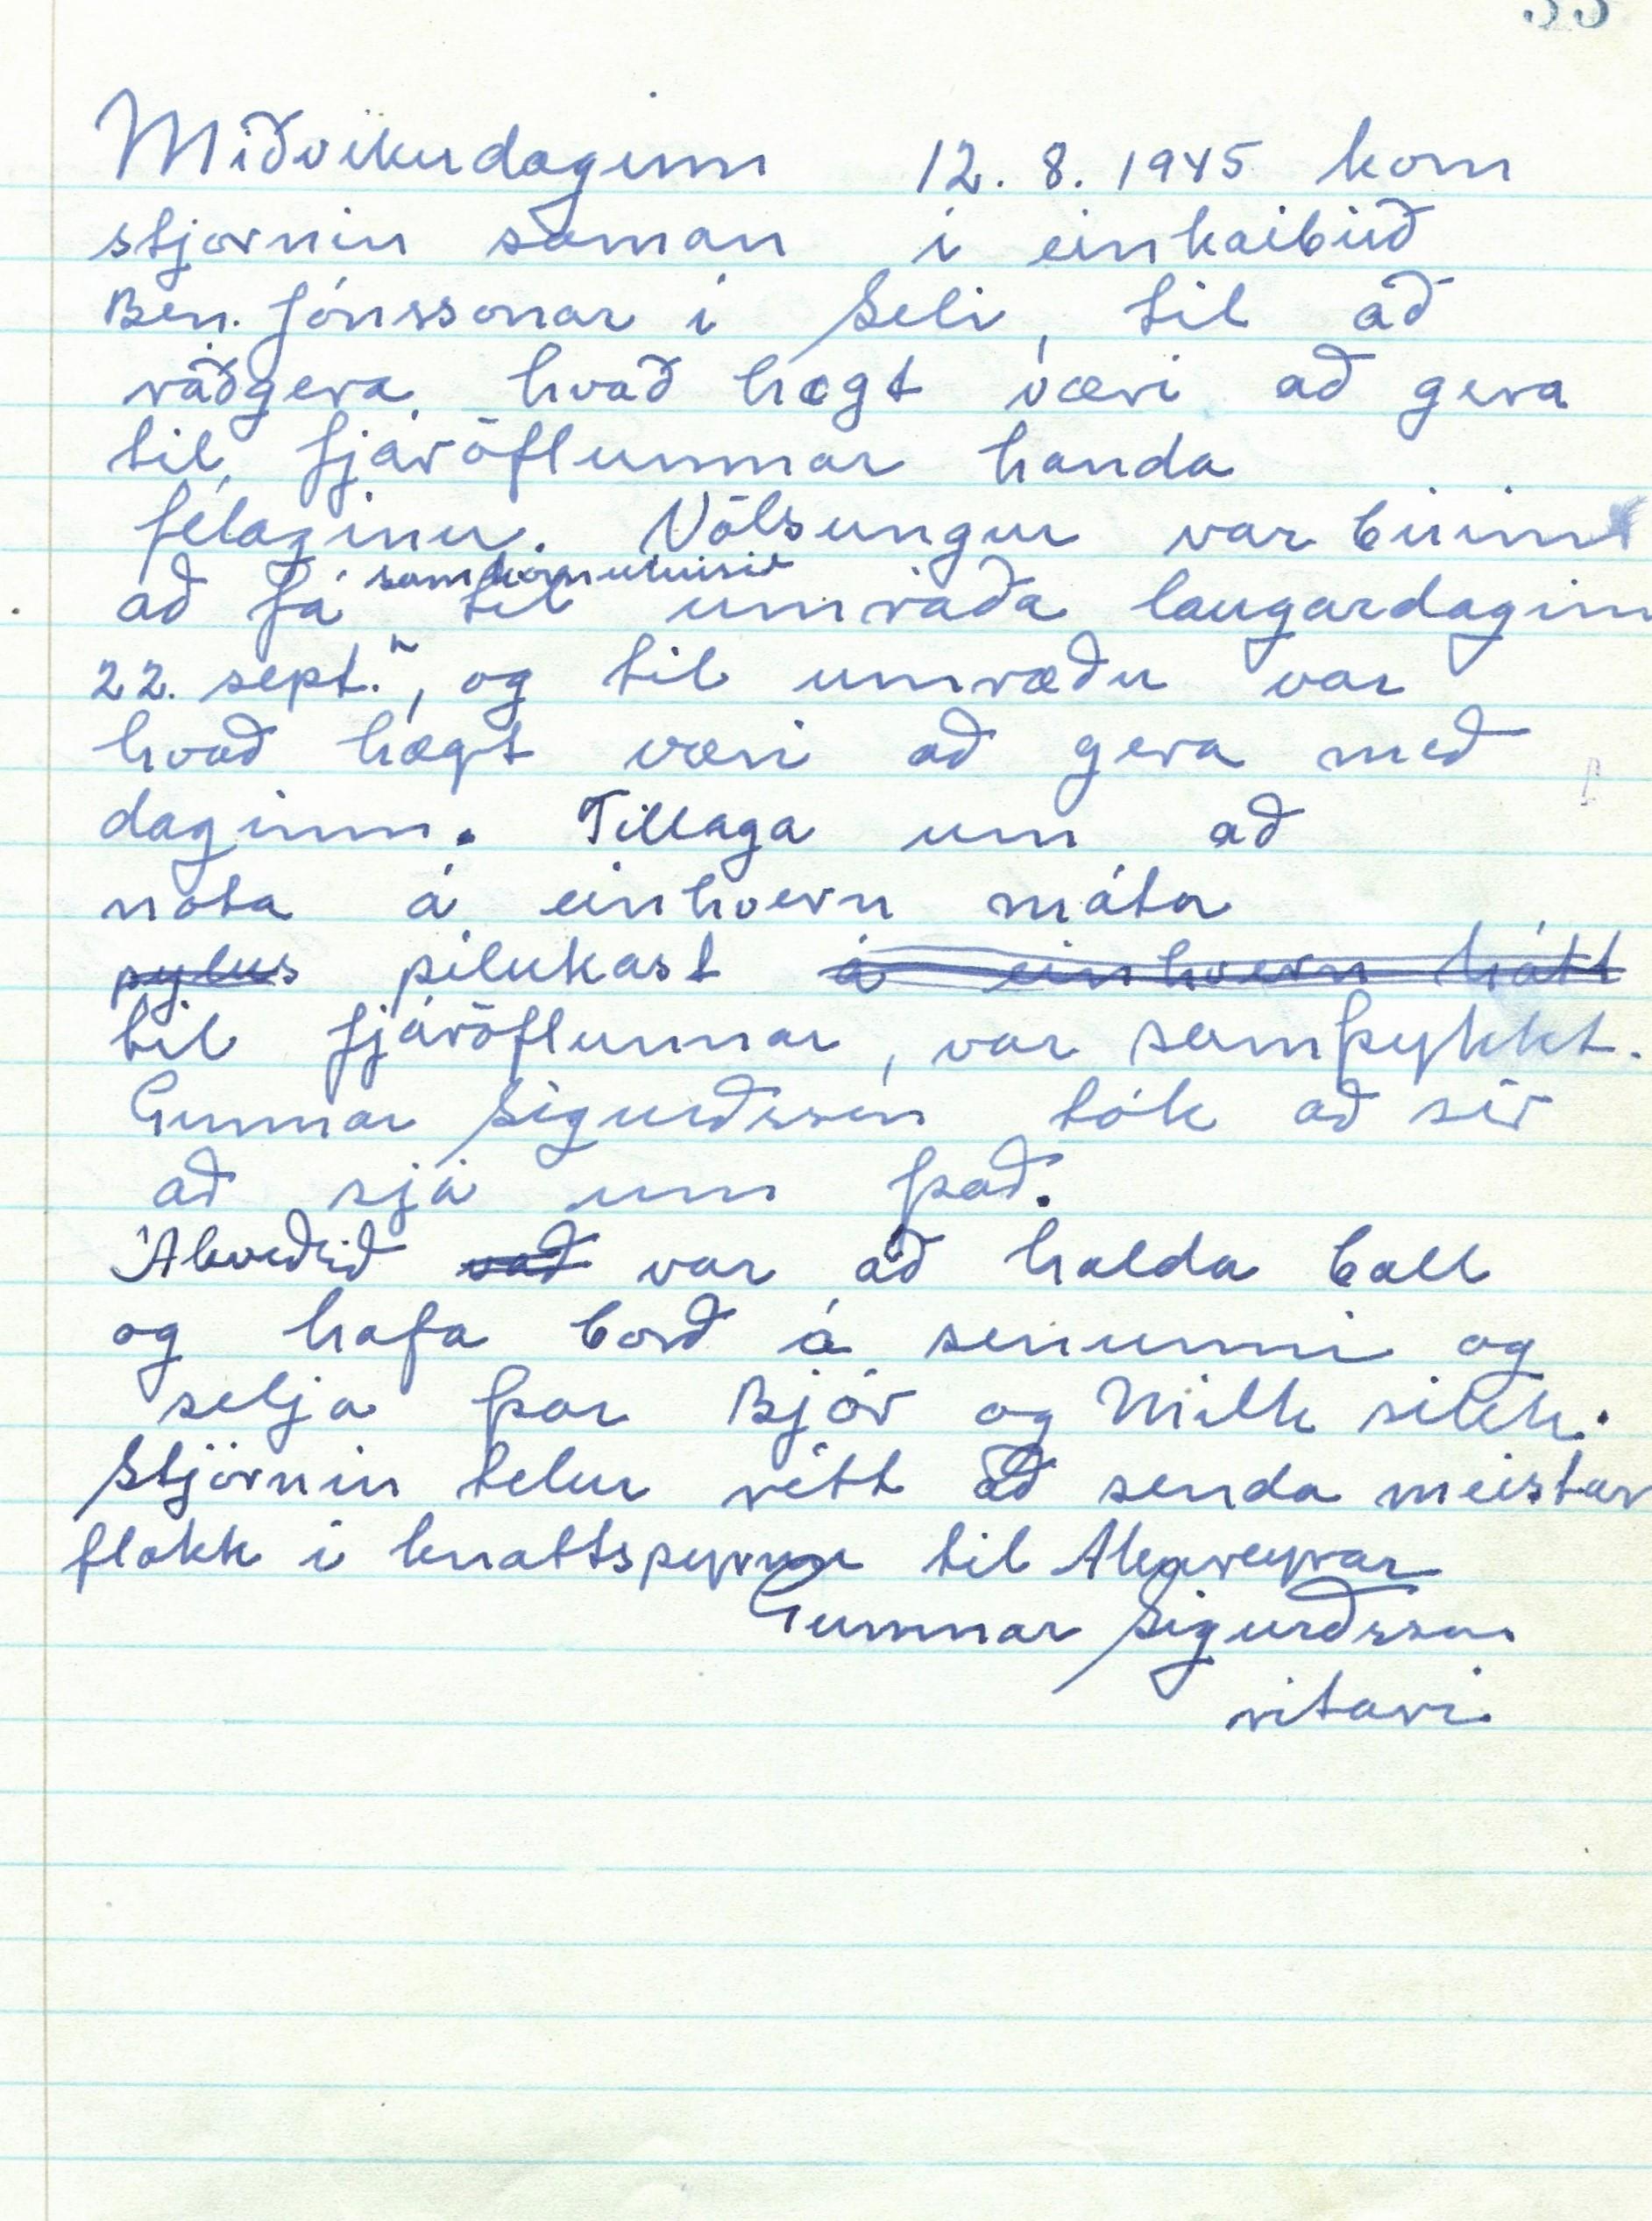 Miðvikudaginn 12. 8. 1945 kom
stjórnin saman í einkaíbúð
Ben. Jónssonar í Seli, til að
ráðgera, hvað hægt væri að gera
til fjáröflunnar handa
félaginu. Völsungur var búinn
að fá samkomuhúsið til umráða laugardaginn
22. sept.", og til umræðu var
hvað hægt væri að gera með
daginn. Tillaga um að
nota á einhvern máta
pylus pílukast á einhvern hátt
til fjáröflunnar, var samþykkt.
Gunnar Sigurðsson tók að sér
að sjá um það.
Ákveðið vað var að halda ball
og hafa borð á senunni og
selja þar Bjór og Milk silk.
Stjórnin telur rétt að senda meistar
flokk í knattspyrnu til Akureyrar
Gunnar Sigurðsson
ritari.